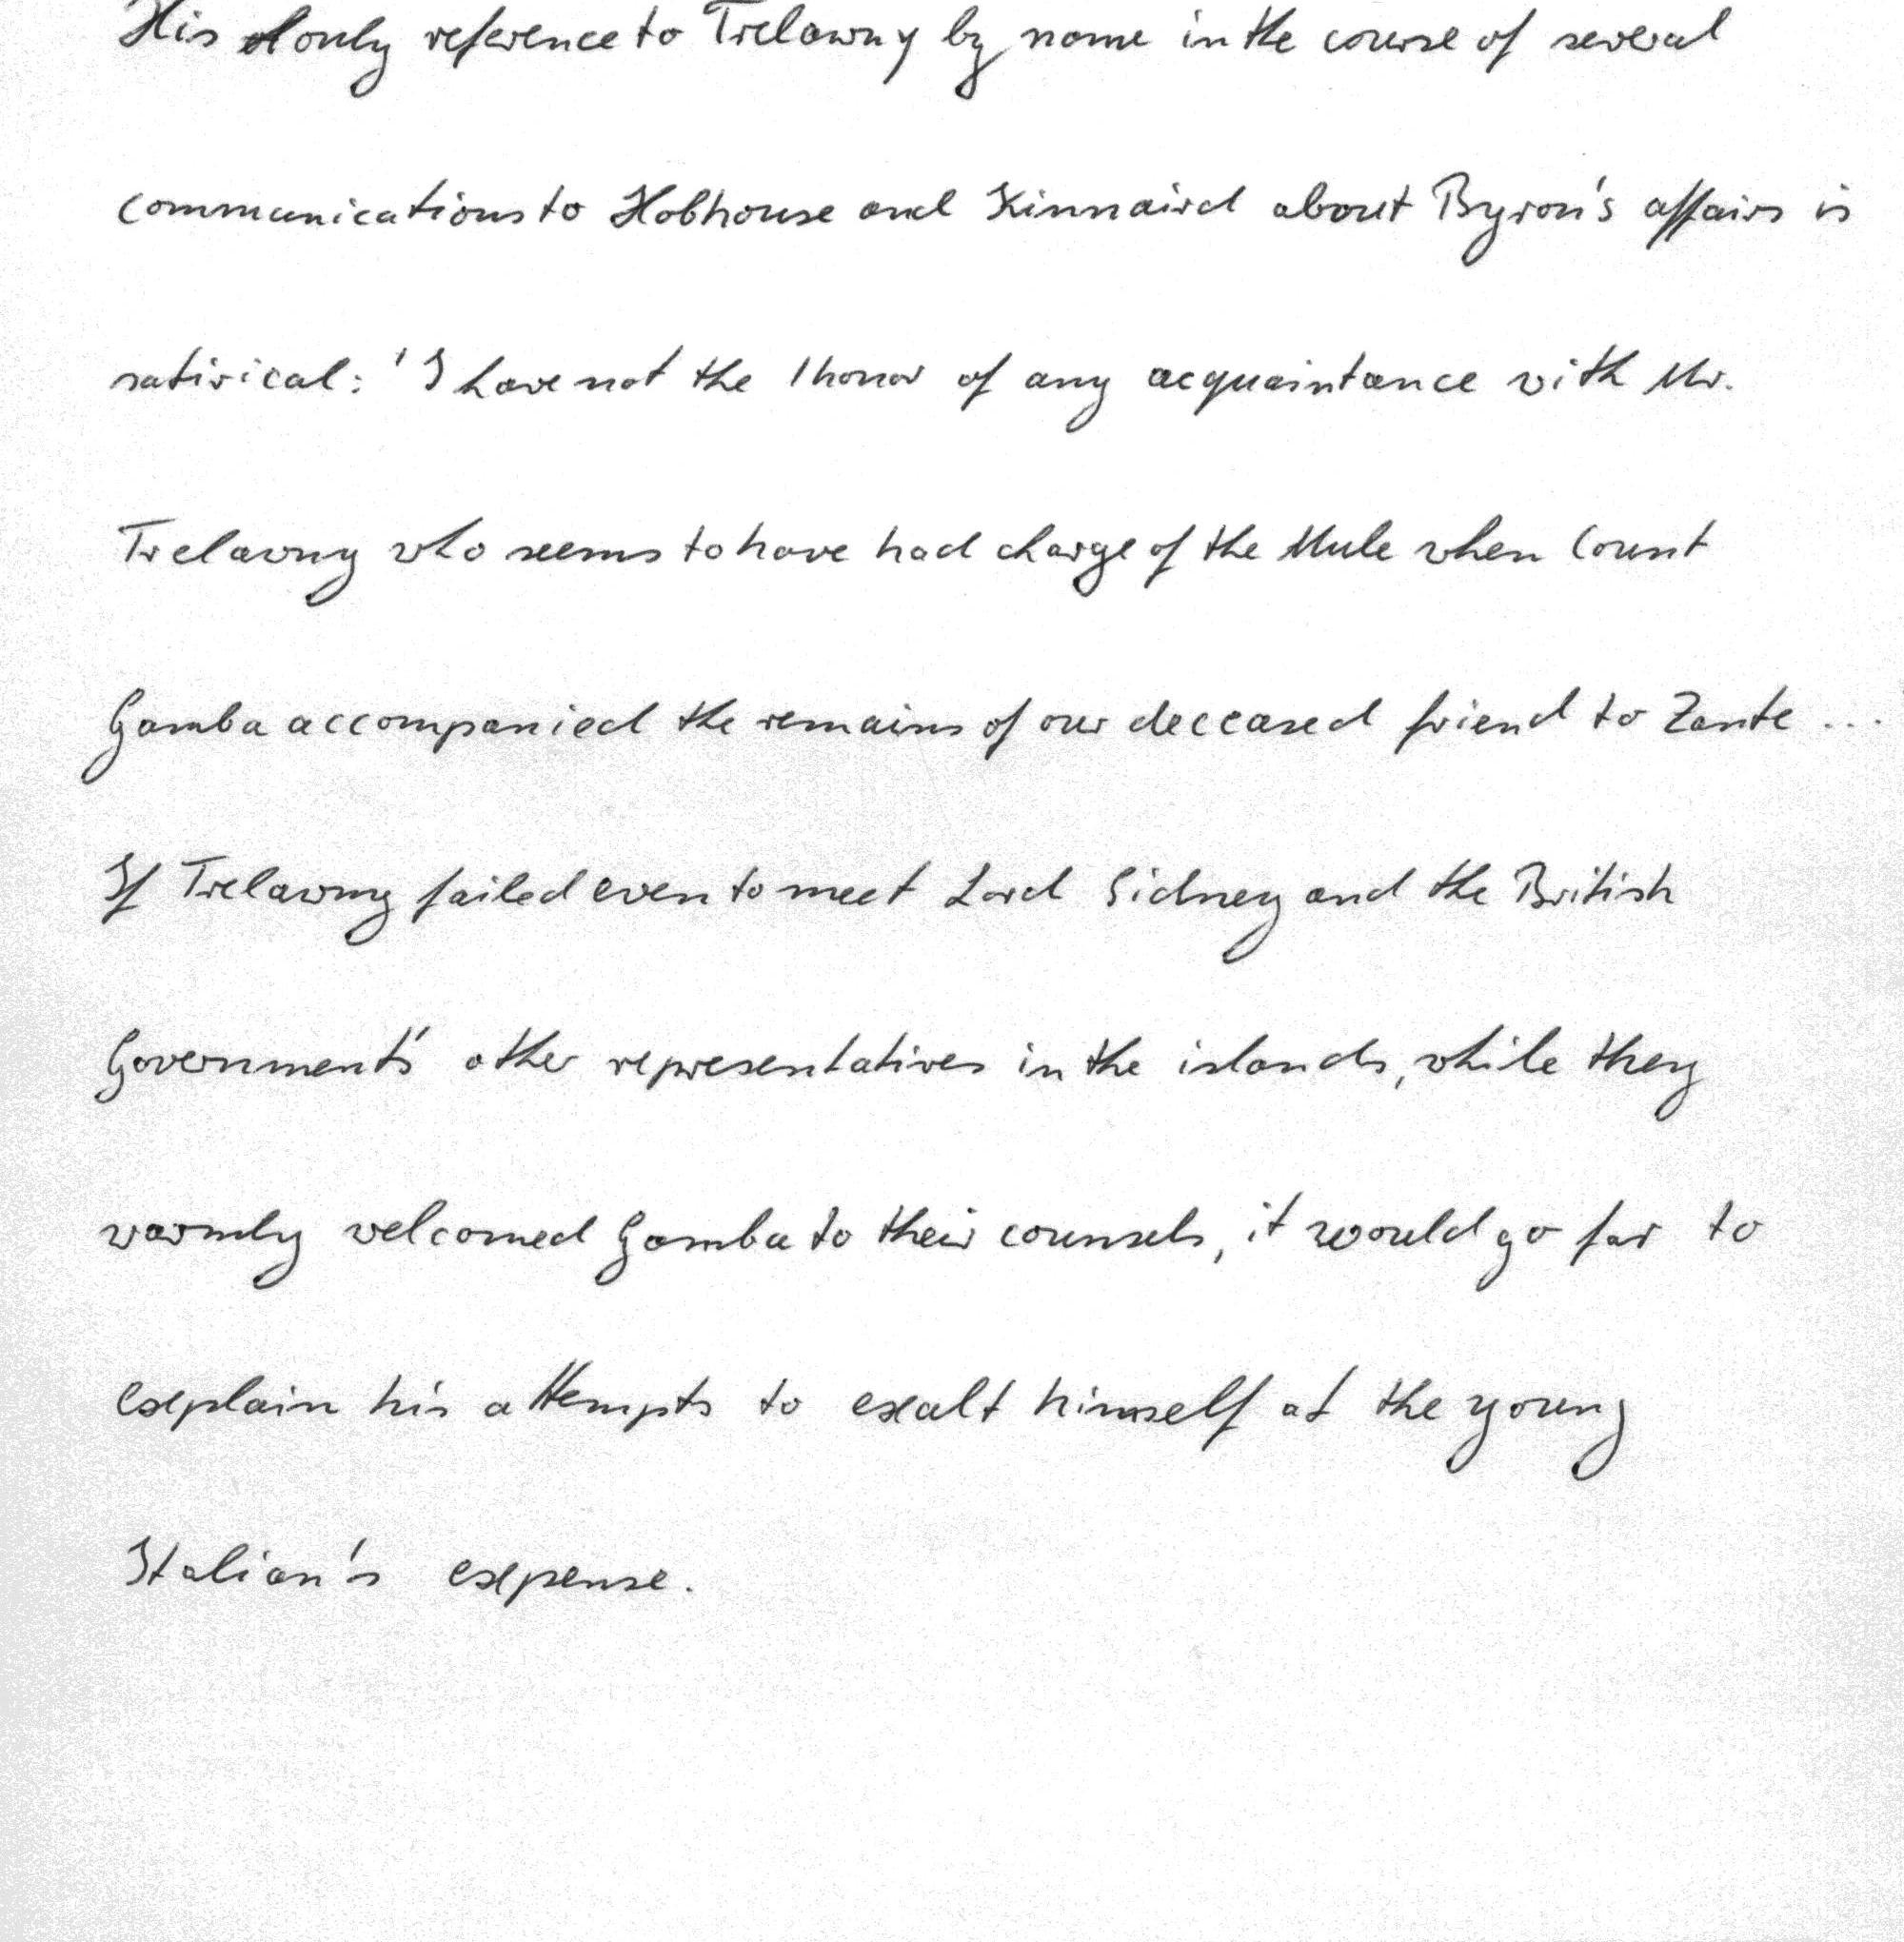 His only reference to Trelawny by name in the course of several
communications to Hobhouse and Kinnaird about Byron's affairs is
satirical: 'I have not the honor of any acquaintance with Mr.
Trelawny who seems to have had charge of the Mule when Count
Gamba accompanied the remains of our deceased friend to Zante ...
If Trelawny failed even to meet Lord Sidney and the British
Government's other representatives in the islands, while they
warmly welcomed Gamba to their counsels, it would go far to
explain his attempts to exalt himself at the young
Italian's expense.